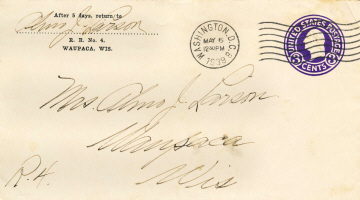 After 5 days, return to
Amo J. Larson
R. R. No. 4.
WAUPACA, WIS.
WASHINGTON, D.C. 6
MAY 6
12 30 PM
1939
UNITED STATES POSTAGE
3 CENTS 3
Mrs. Amo J. Larson
Waupaca
Wis
R.4.